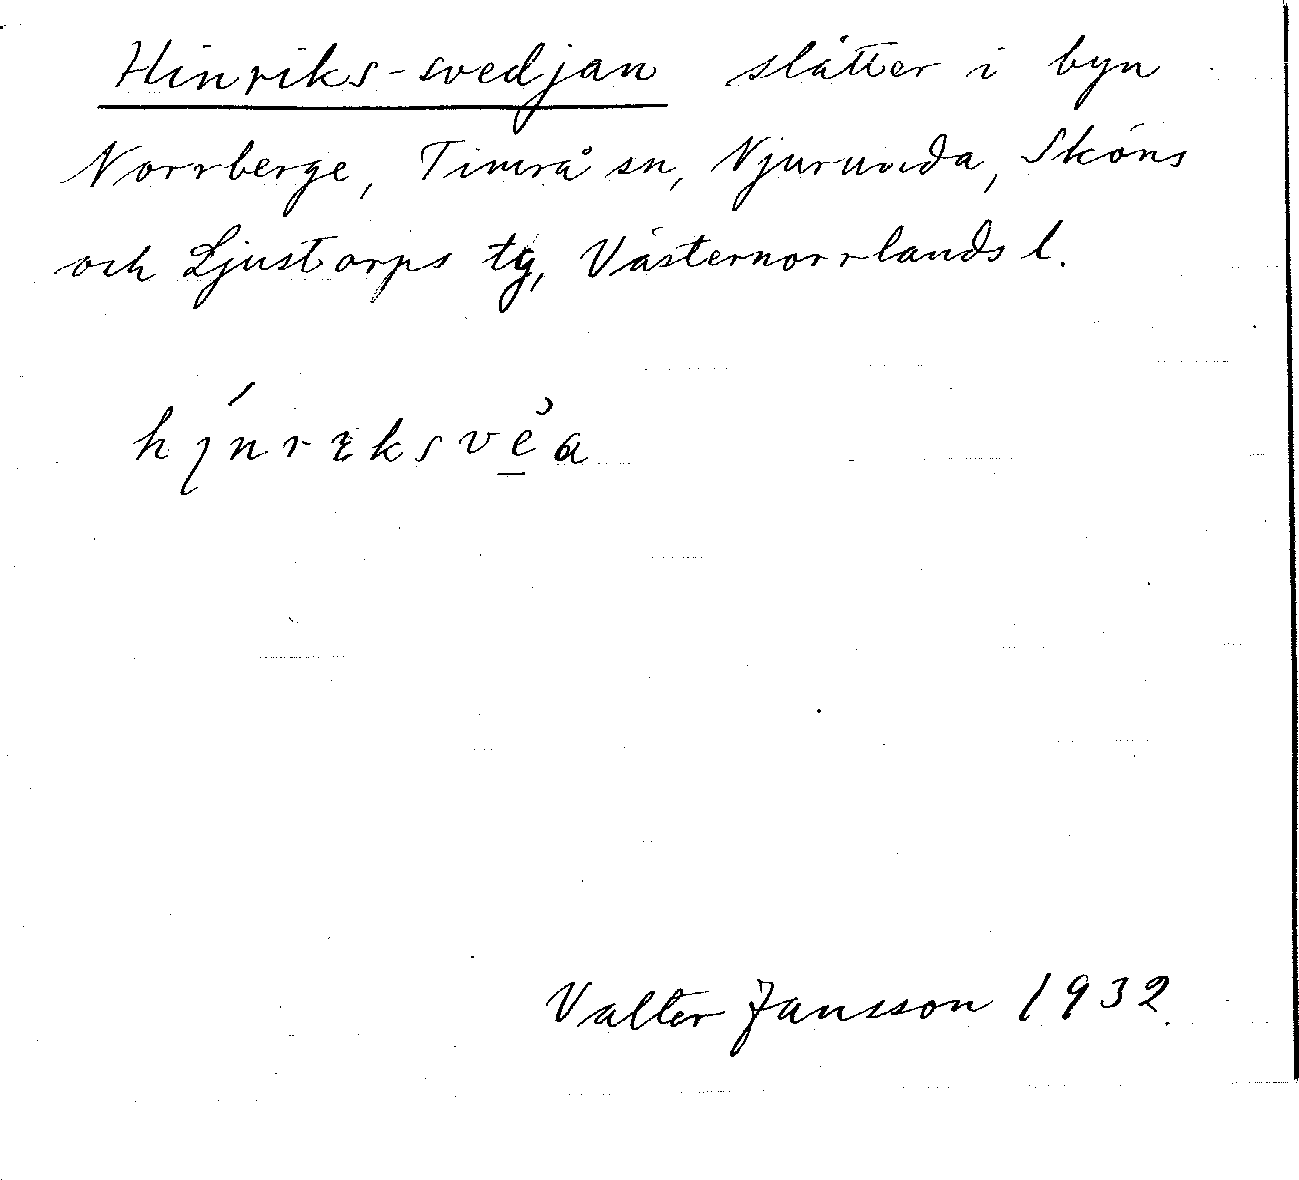 Hinriks-svedjan slåtter i byn
Norrberge, Timrå sn, Njurunda, Sköns
och Ljustorps tg, Västernorrlands l.
hı̨́nrɛksvẻ̠a
Valter Jansson 1932.